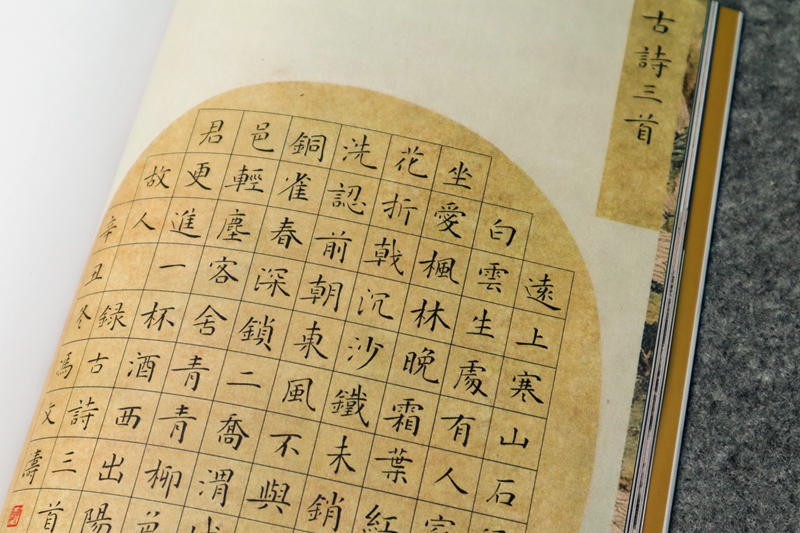 古詩三首
遠上寒山石
白雲生處有人家
坐愛楓林晚霜葉紅
花折戟沉沙鐵未銷
洗認前朝東風不與
銅雀春深鎖二喬渭
邑輕塵客舍青青柳色
君更進一杯酒西出陽
故人
録古詩三首
辛丑冬馮文濤